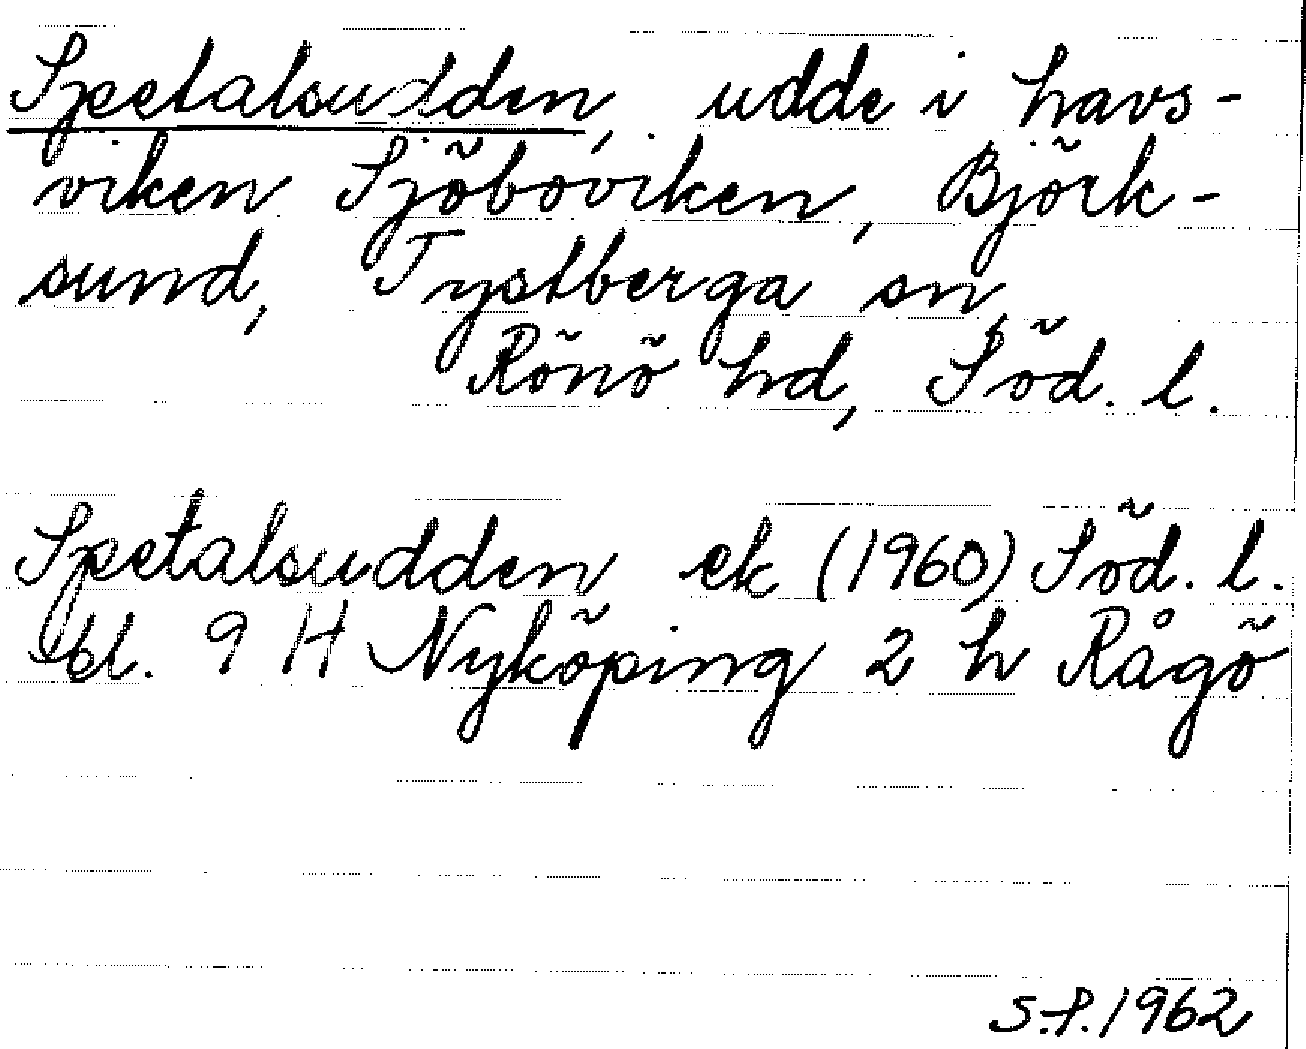 Spetalsudden, udde i havs-
viken Sjöboviken, Björk-
sund, Tystberga sn,
Rönö hd, Söd. l.
Spetalsudden ek (1960) Söd. l.
bl. 9 H Nyköping 2 h Rågö
S.P. 1962